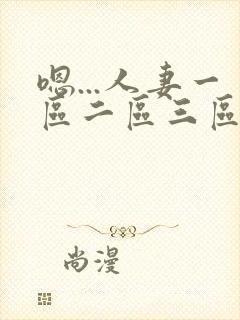 嗯...人妻一
區二區三區
尚漫